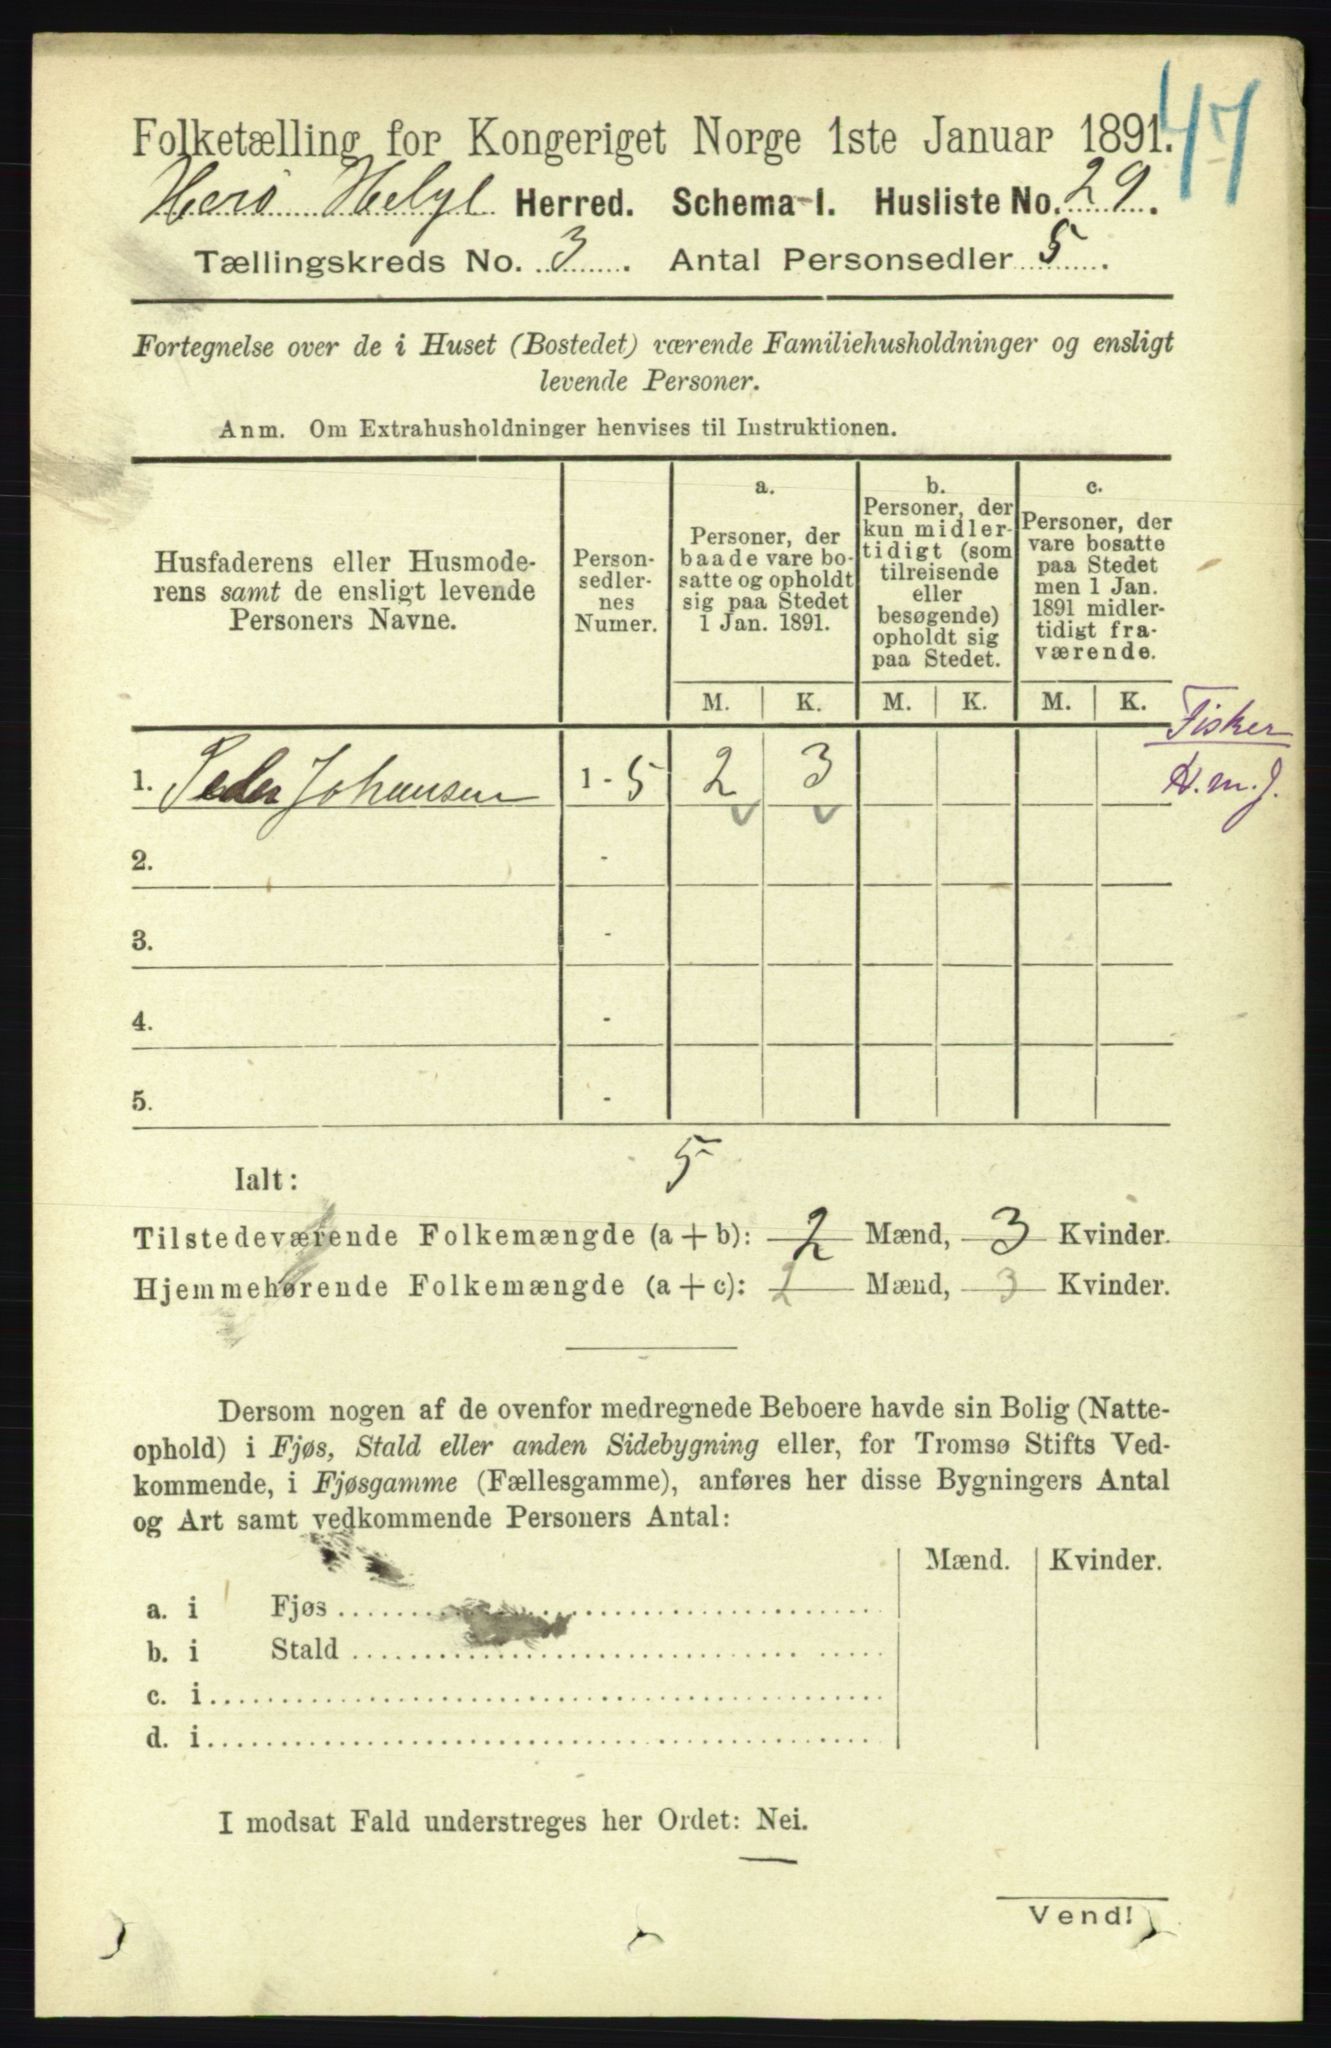 47
Folketælling for Kongeriget Norge 1ste Januar 1891.
Herö Helgl Herred. Schema I. Husliste No. 29.
Tællingskreds No. 3. Antal Personsedler 5.
Fortegnelse over de i Huset (Bostedet) værende Familiehusholdninger og ensligt
levende Personer.
Anm. Om Extrahusholdninger henvises til Instruktionen.
Husfaderens eller Husmode-
rens samt de ensligt levende
Personers Navne.
Person-
sedler-
nes
Numer.
a.
Personer, der
baade vare bo-
satte og opholdt
sig paa Stedet
1 Jan. 1891.
b.
Personer, der
kun midler-
tidigt (som
tilreisende
eller
besøgende)
opholdt sig
paa Stedet.
c.
Personer, der
vare bosatte
paa Stedet
men 1 Jan.
1891 midler-
tidigt fra-
værende.
M. K. M. K. M. K.
Fisker
1. Peder Johansen 1 - 5 2 3 H.m.J.
2. -
3. -
4. -
5. -
Ialt: 5
Tilstedeværende Folkemængde (a + b): 2 Mænd, 3 Kvinder.
Hjemmehørende Folkemængde (a + c): 2 Mænd, 3 Kvinder.
Dersom nogen af de ovenfor medregnede Beboere havde sin Bolig (Natte-
ophold) i Fjøs, Stald eller anden Sidebygning eller, for Tromsø Stifts Ved-
kommende, i Fjøsgamme (Fællesgamme), anføres her disse Bygningers Antal
og Art samt vedkommende Personers Antal:
Mænd. Kvinder.
a. i Fjøs
b. i Stald
c. i
d. i
I modsat Fald understreges her Ordet: Nei.
Vend!